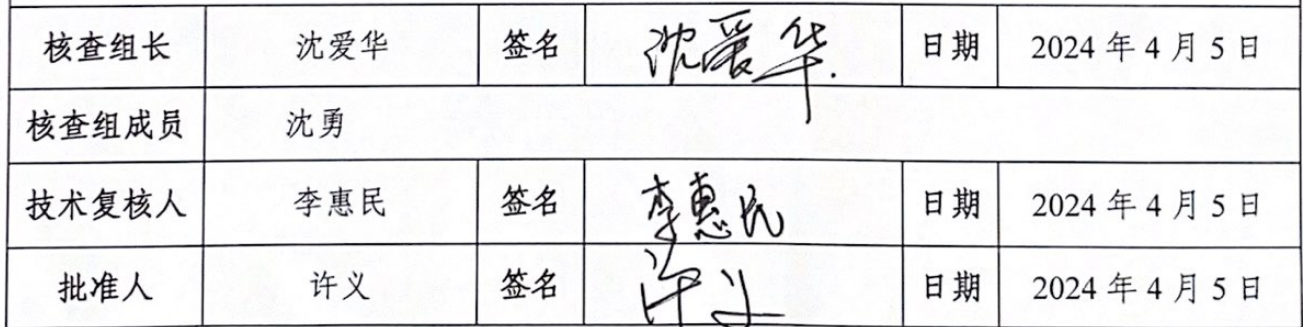 核查组长 沈爱华 签名 沈爱华 日期 2024 年 4 月 5 日
核查组成员 沈勇
技术复核人 李惠民 签名 李惠民 日期 2024 年 4 月 5 日
批准人 许义 签名 许义 日期 2024 年 4 月 5 日